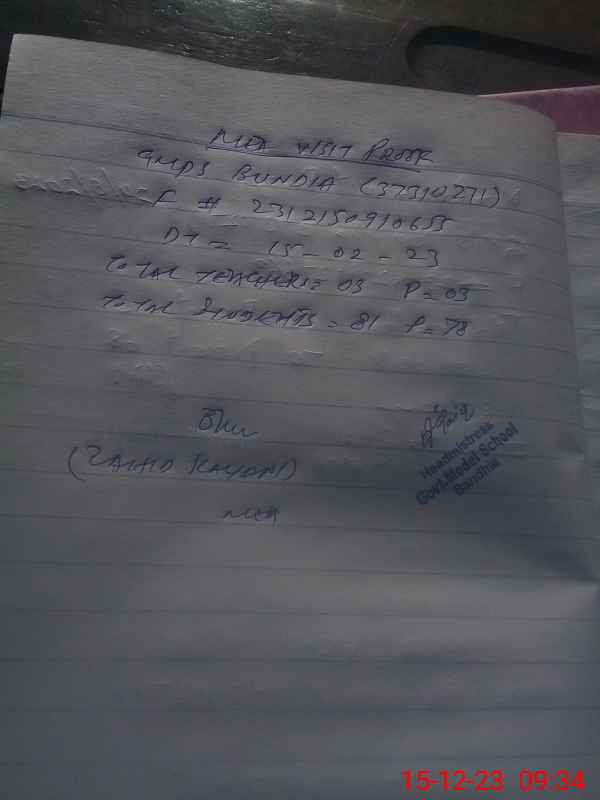 MEA VISIT PROOF
GMPS BUNDIA (37310271)
F # 2312150910655
DT = 15-02-23
TOTAL TEACHERS = 03 P = 03
TOTAL STUDENTS = 81 P = 78
(ZAHID KAYANI)
MEA
Headmistress
Govt.Model School
Bandhia
15-12-23 09:34